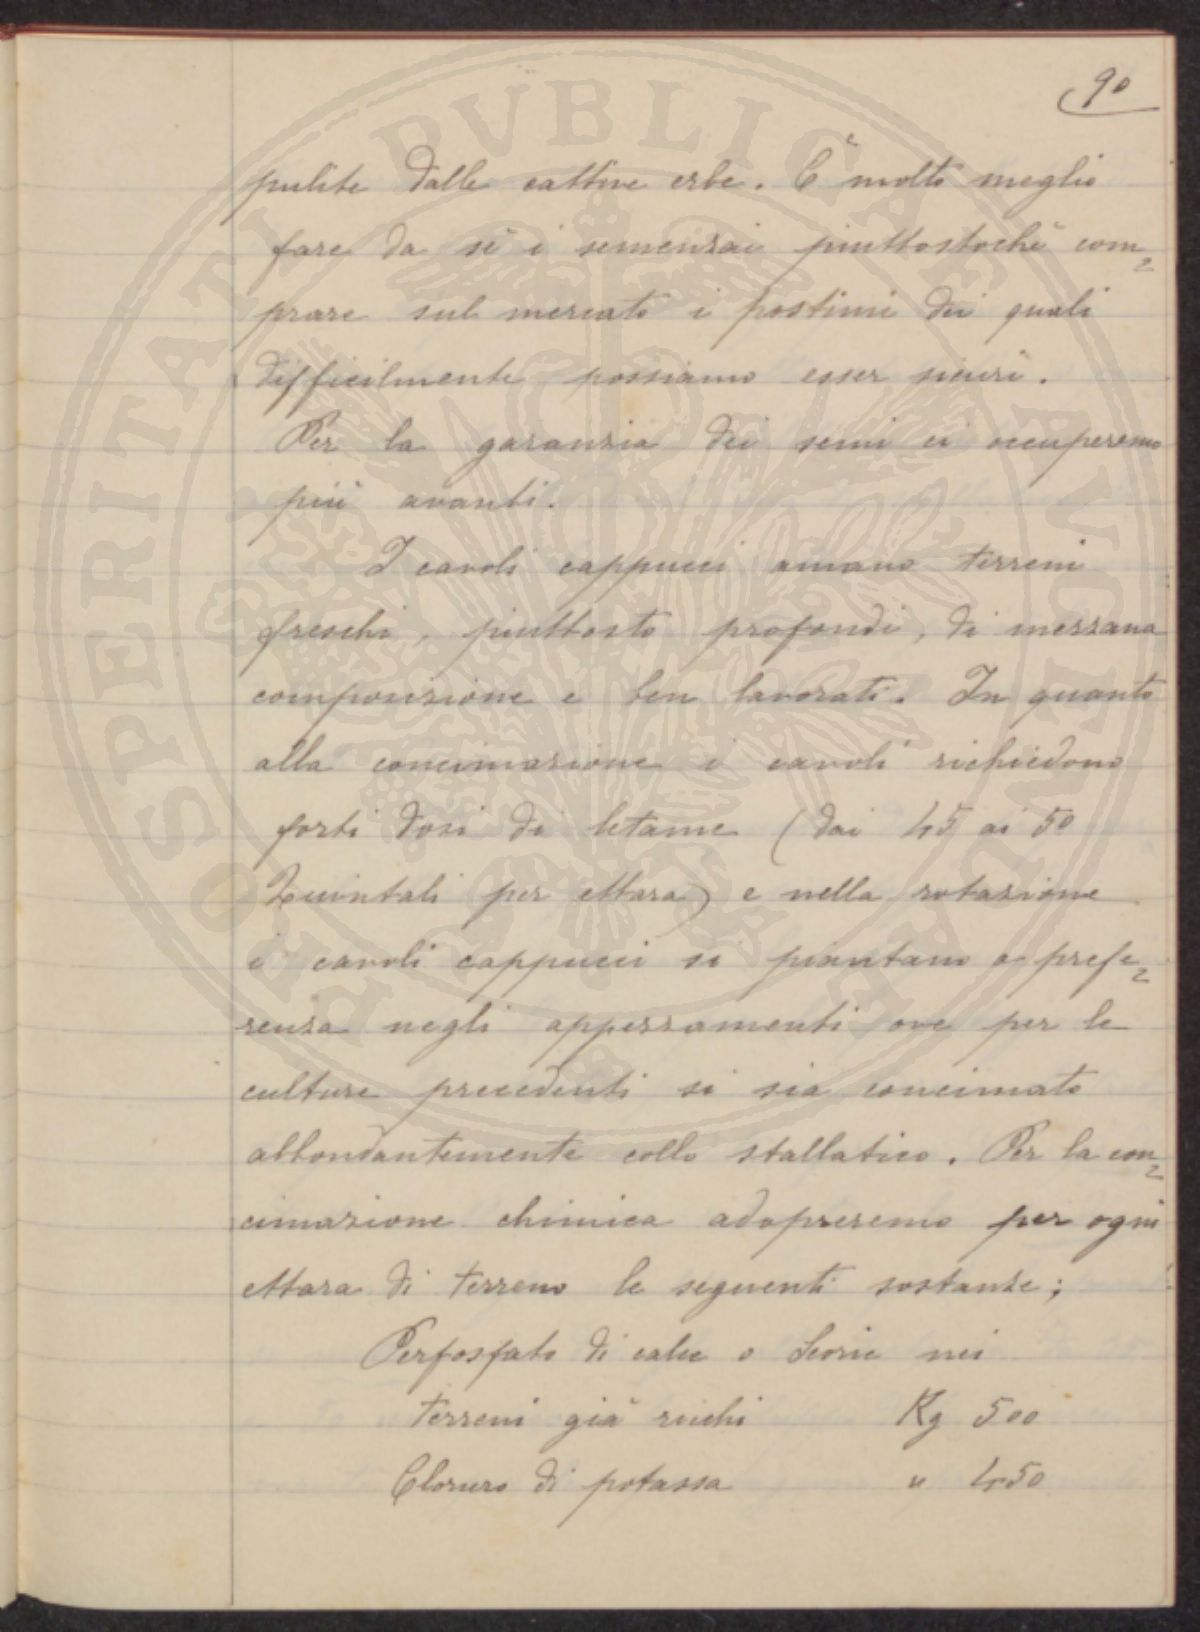 90
pulite dalle cattive erbe. È molto meglio
fare da sè i semenzai piuttostochè com=
prare sul mercato i postimi dei quali
difficilmente possiamo esser sicuri.
Per la garanzia dei semi ci occuperemo
più avanti.
I cavoli cappucci amano terreni
freschi, piuttosto profondi, di mezzana
composizione e ben lavorati. In quanto
alla concimazione i cavoli richiedono
forti dosi di letame (dai 45 ai 50
Quintali per ettara) e nella rotazione
i cavoli cappucci si piantano a prefe=
renza negli appezzamenti ove per le
culture precedenti si sia concimato
abbondantemente collo stallatico. Per la con=
cimazione chimica adopreremo per ogni
ettara di terreno le seguenti sostanze;
Perfosfato di calce o Scorie nei
terreni già ricchi Kg 500
Cloruro di potassa " 450
PROSPERITATI PVBLICAE AVGENDAE